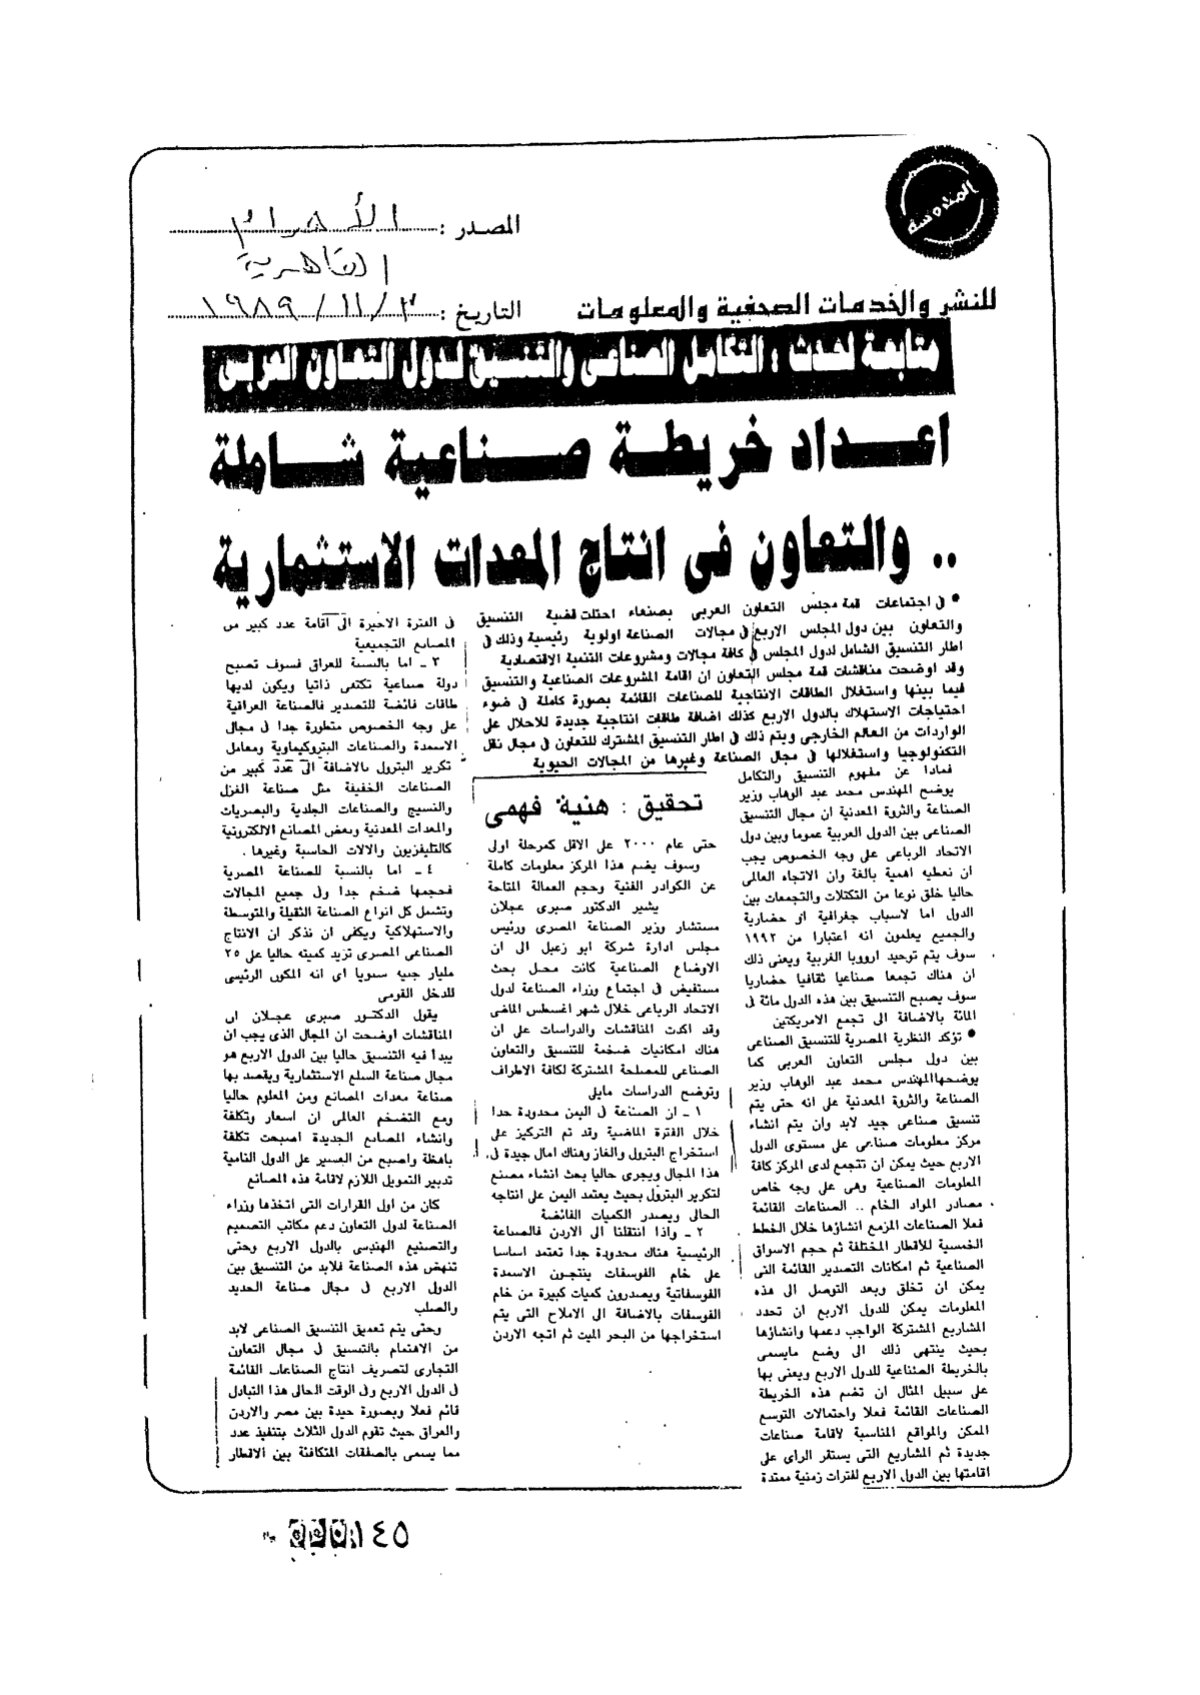 المدوسة
المصدر : الأهرام
القاهرية
للنشر والخدمات الصحفية والمعلومات
التاريخ : ٣/١١/١٩٨٩
متابعة لحدث : التكامل الصناعى والتنسيق لدول التعاون العربى
اعداد خريطة صناعية شاملة
.. والتعاون فى انتاج المعدات الاستثمارية
● فى اجتماعات قمة مجلس التعاون العربى بصنعاء احتلت قضية التنسيق
والتعاون بين دول المجلس الاربع فى مجالات الصناعة اولوية رئيسية وذلك فى
اطار التنسيق الشامل لدول المجلس فى كافة مجالات ومشروعات التنمية الاقتصادية
وقد اوضحت مناقشات قمة مجلس التعاون ان اقامة المشروعات الصناعية والتنسيق
فيما بينها واستغلال الطاقات الانتاجية للصناعات القائمة بصورة كاملة فى ضوء
احتياجات الاستهلاك بالدول الاربع كذلك اضافة طاقات انتاجية جديدة للاحلال على
الواردات من العالم الخارجى ويتم ذلك فى اطار التنسيق المشترك للتعاون فى مجال نقل
التكنولوجيا واستغلالها فى مجال الصناعة وغيرها من المجالات الحيوية
فماذا عن مفهوم التنسيق والتكامل
يوضح المهندس محمد عبد الوهاب وزير
الصناعة والثروة المعدنية ان مجال التنسيق
الصناعى بين الدول العربية عموما وبين دول
الاتحاد الرباعى على وجه الخصوص يجب
ان نعطيه اهمية بالغة وان الاتجاه العالمى
حاليا خلق نوعا من التكتلات والتجمعات بين
الدول اما لاسباب جغرافية او حضارية
والجميع يعلمون انه اعتبارا من ١٩٩٢
سوف يتم توحيد اروربا الغربية ويعنى ذلك
ان هناك تجمعا صناعيا ثقافيا حضاريا
سوف يصبح التنسيق بين هذه الدول مائة فى
المائة بالاضافة الى تجمع الامريكتين
● تؤكد النظرية المصرية للتنسيق الصناعى
بين دول مجلس التعاون العربى كما
يوضحها المهندس محمد عبد الوهاب وزير
الصناعة والثروة المعدنية على انه حتى يتم
تنسيق صناعى جيد لابد وان يتم انشاء
مركز معلومات صناعى على مستوى الدول
الاربع حيث يمكن ان تتجمع لدى المركز كافة
المعلومات الصناعية وهى على وجه خاص
مصادر المواد الخام .. الصناعات القائمة
فعلا الصناعات المزمع انشاؤها خلال الخطط
الخمسية للأقطار المختلفة ثم حجم الاسواق
الصناعية ثم امكانات التصدير القائمة التى
يمكن ان تخلق وبعد التوصل الى هذه
المعلومات يمكن للدول الاربع ان تحدد
المشاريع المشتركة الواجب دعمها وانشاؤها
بحيث ينتهى ذلك الى وضع مايسمى
بالخريطة الصناعية للدول الاربع ويعنى بها
على سبيل المثال ان تضم هذه الخريطة
الصناعات القائمة فعلا واحتمالات التوسع
الممكن والمواقع المناسبة لاقامة صناعات
جديدة ثم المشاريع التى يستقر الراى على
اقامتها بين الدول الاربع لفترات زمنية ممتدة
تحقيق : هنية فهمى
حتى عام ٢٠٠٠ على الاقل كمرحلة اولى
وسوف يضم هذا المركز معلومات كاملة
عن الكوادر الفنية وحجم العمالة المتاحة
يشير الدكتور صبرى عجلان
مستشار وزير الصناعة المصرى ورئيس
مجلس ادارة شركة ابو زعبل الى ان
الاوضاع الصناعية كانت محل بحث
مستفيض فى اجتماع وزراء الصناعة لدول
الاتحاد الرباعى خلال شهر اغسطس الماضى
وقد اكدت المناقشات والدراسات على ان
هناك امكانيات ضخمة للتنسيق والتعاون
الصناعى للمصلحة المشتركة لكافة الاطراف
وتوضح الدراسات مايلى
١ ـ ان الصناعة فى اليمن محدودة جدا
خلال الفترة الماضية وقد تم التركيز على
استخراج البترول والغاز وهناك امال جيدة فى
هذا المجال ويجرى حاليا بحث انشاء مصنع
لتكرير البترول بحيث يعتمد اليمن على انتاجه
الحالى ويصدر الكميات الفائضة
٢ ـ واذا انتقلنا الى الاردن فالصناعة
الرئيسية هناك محدودة جدا تعتمد اساسا
على خام الفوسفات ينتجون الاسمدة
الفوسفاتية ويصدرون كميات كبيرة من خام
الفوسفات بالاضافة الى الاملاح التى يتم
استخراجها من البحر الميت ثم اتجه الاردن
فى الفترة الاخيرة الى اقامة عدد كبير من
المصانع التجميعية
٣ ـ اما بالنسبة للعراق فسوف تصبح
دولة صناعية تكتفى ذاتيا ويكون لديها
طاقات فائضة للتصدير فالصناعة العراقية
على وجه الخصوص متطورة جدا فى مجال
الاسمدة والصناعات البتروكيماوية ومعامل
تكرير البترول بالاضافة الى عدد كبير من
الصناعات الخفيفة مثل صناعة الغزل
والنسيج والصناعات الجلدية والبصريات
والمعدات المعدنية وبعض المصانع الالكترونية
كالتليفزيون والالات الحاسبة وغيرها .
٤ ـ اما بالنسبة للصناعة المصرية
فحجمها ضخم جدا وفى جميع المجالات
وتشمل كل انواع الصناعة الثقيلة والمتوسطة
والاستهلاكية ويكفى ان نذكر ان الانتاج
الصناعى المصرى تزيد كميته حاليا على ٢٥
مليار جنيه سنويا اى انه المكون الرئيسى
للدخل القومى
يقول الدكتور صبرى عجلان ان
المناقشات اوضحت ان المجال الذى يجب ان
يبدأ فيه التنسيق حاليا بين الدول الاربع هو
مجال صناعة السلع الاستثمارية ويقصد بها
صناعة معدات المصانع ومن المعلوم حاليا
ومع التضخم العالمى ان اسعار وتكلفة
وانشاء المصانع الجديدة اصبحت تكلفة
باهظة واصبح من العسير على الدول النامية
تدبير التمويل اللازم لاقامة هذه المصانع
كان من اول القرارات التى اتخذها وزراء
الصناعة لدول التعاون دعم مكاتب التصميم
والتصنيع الهندسى بالدول الاربع وحتى
تنهض هذه الصناعة فلابد من التنسيق بين
الدول الاربع فى مجال صناعة الحديد
والصلب
وحتى يتم تعميق التنسيق الصناعى لابد
من الاهتمام بالتنسيق فى مجال التعاون
التجارى لتصريف انتاج الصناعات القائمة
فى الدول الاربع وفى الوقت الحالى هذا التبادل
قائم فعلا وبصورة جيدة بين مصر والاردن
والعراق حيث تقوم الدول الثلاث بتنفيذ عدد
مما يسمى بالصفقات المتكافئة بين الاقطار
١٤٥